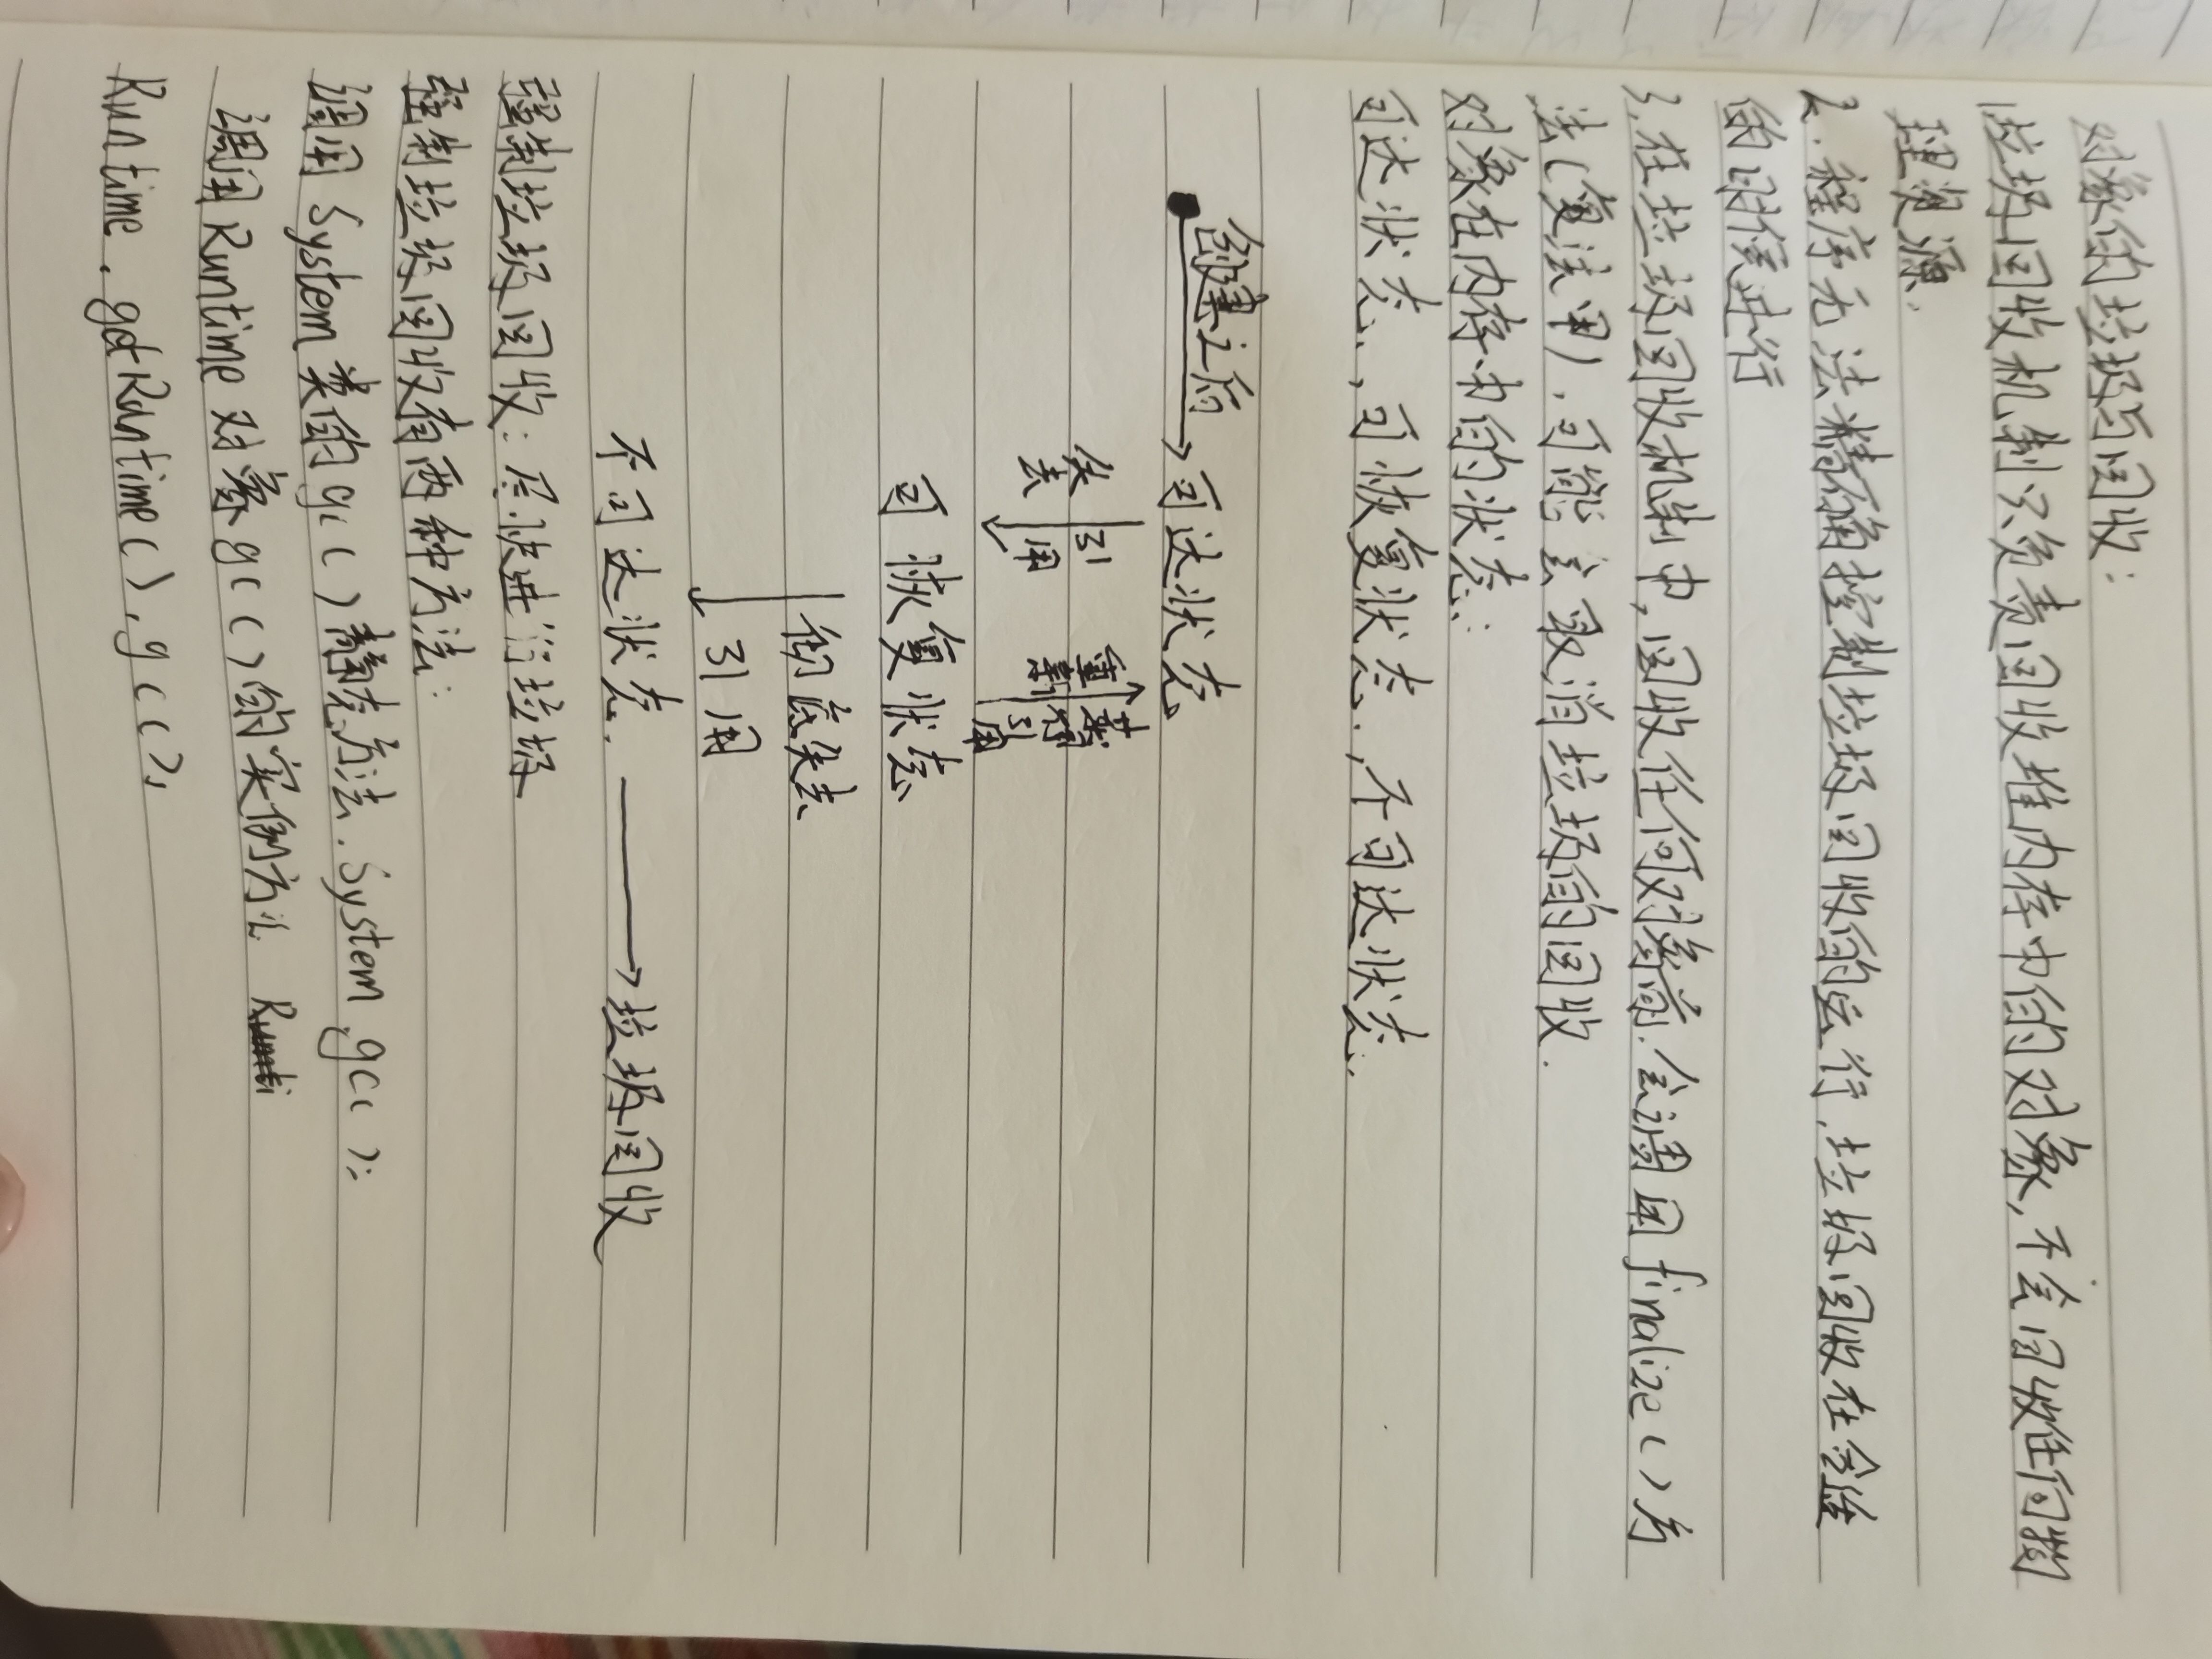 对象的垃圾与回收:
垃圾回收机制只负责回收堆内存中的对象,不会回收任何物
理资源.
2.程序无法精确控制垃圾回收的运行,垃圾回收在合适
的时候进行
3.在垃圾回收机制中,回收任何对象前.会调用finalize()方
法(复活甲),可能会取消垃圾的回收.
对象在内存中的状态:
可达状态,可恢复状态,不可达状态.
创建之后
可达状态
失去引用
重新获得引用
可恢复状态
彻底失去
引用
不可达状态. 垃圾回收
强制垃圾回收:尽快进行垃圾
强制垃圾回收有两种方法:
调用System类的gc()静态方法.System.gc();
调用Runtime对象gc()的实例方法
Runtime.getRuntime().gc();